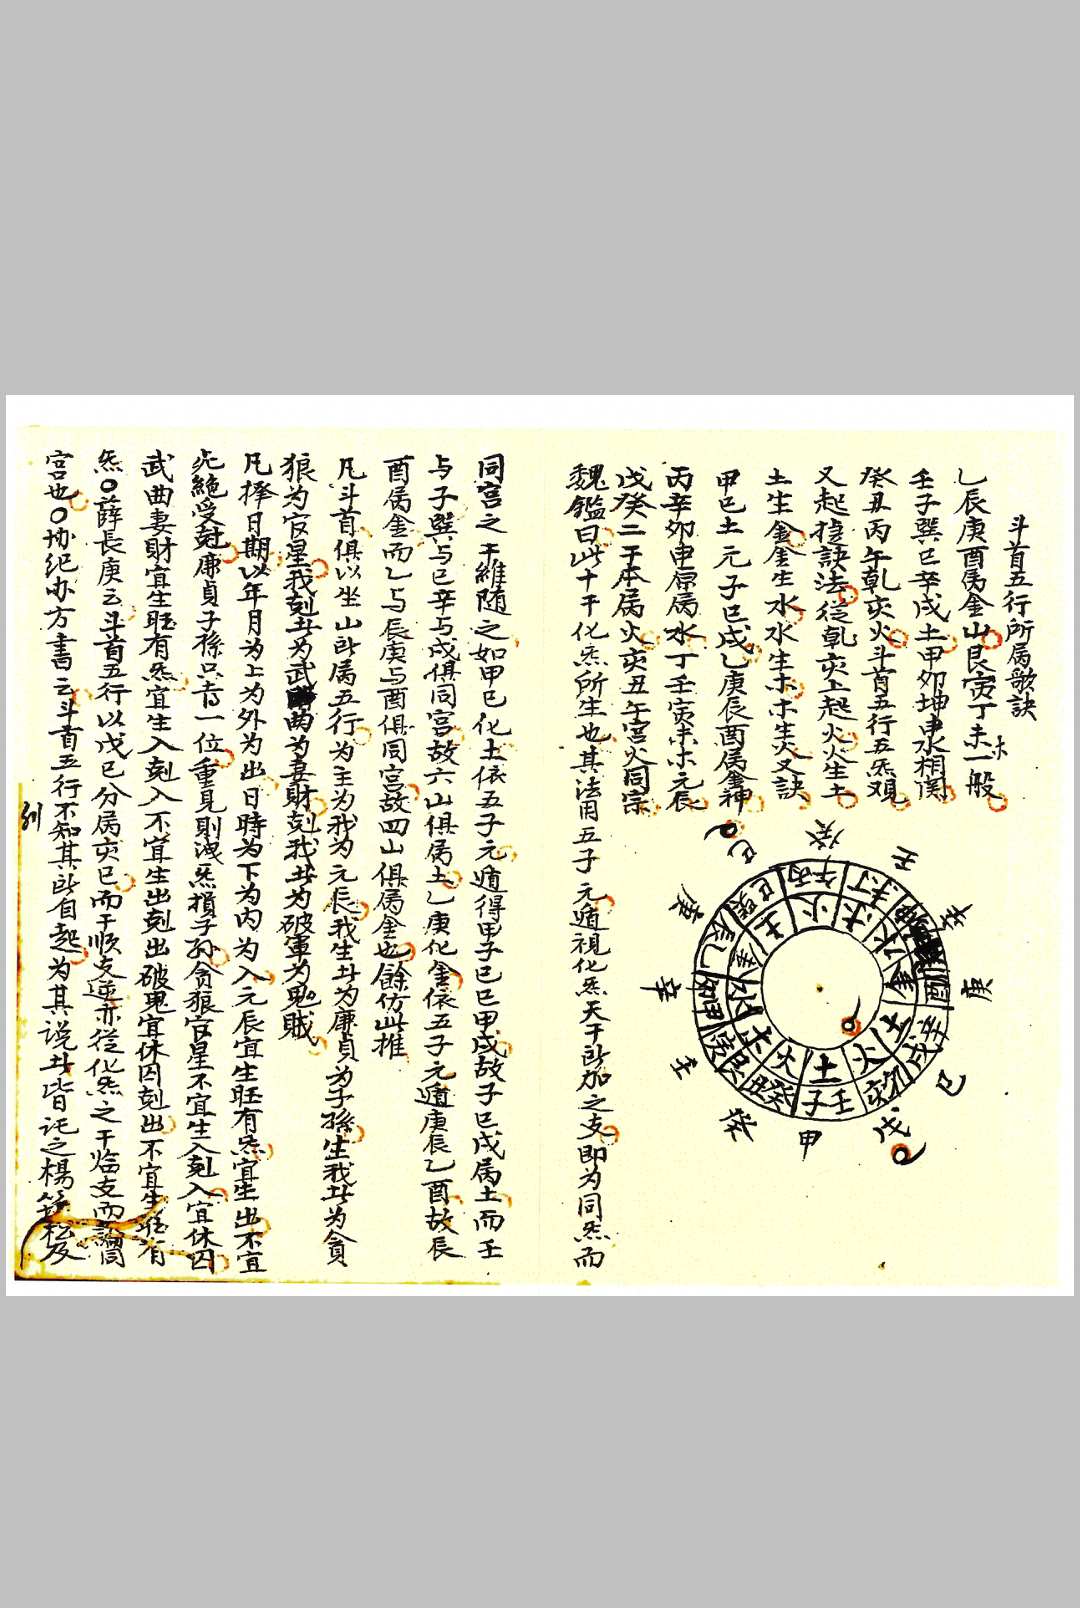 斗首五行所属歌訣
乙辰庚酉属金山艮寅丁未木一般
壬子巽巳辛戌土甲夘坤申水相関
癸丑丙午乾亥火斗首五行五炁艰
又起捷訣法従乾亥上起火火生土
土生金金生水水生木木生火又訣
甲己土元子巳戌乙庚辰酉属金神
丙辛夘申原属水丁壬寅未木元辰
戊癸二干本属火亥丑午宫火同宗
魏鑑曰此十干化炁所生也其法用五子元遁視化炁天干所加之支即为同炁而
同宫之干維随之如甲己化土依五子元遁得甲子己巳甲戌故子巳戌属土而壬
与子巽与巳辛与戌俱同宫故六山俱属土乙庚化金依五子元遁庚辰乙酉故辰
酉属金而乙与辰庚与酉俱同宫故四山俱属金也餘仿此推
凡斗首俱以坐山所属五行为主为我为元辰我生者为廉貞为子孫生我者为貪
狼为官星我剋者为武曲为妻財剋我者为破軍为鬼賊
凡擇日期以年月为上为外为出日時为下为内为入元辰宜生旺有炁宜生出不宜
死絶受剋廉貞子孫只亯一位重見則洩炁損子孙貪狼官星不宜生入剋入宜休囚
武曲妻財宜生旺有炁宜生入剋入不宜生出剋出破鬼宜休囚剋出不宜生旺有
炁〇薛長庚云斗首五行以戊己分属亥巳而干順支逆亦従化炁之干临支而論同
宫也〇协纪办方書云斗首五行不知其所自起为其说者皆託之楊筠松及
列
甲
癸
壬
辛
庚
己
癸
壬
癸
庚
己
戊
土
火
土
金
水
木
火
土
金
水
木
火
壬子